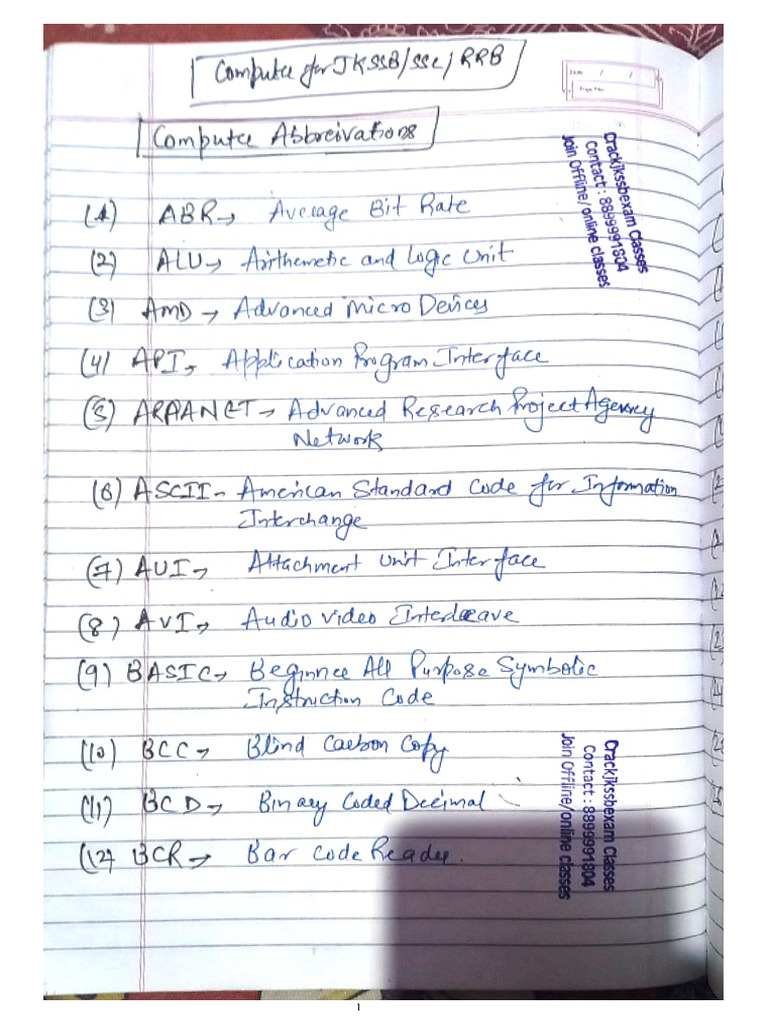 Computer for JKSSB/SSC/RRB
Computer Abbreivations
(1) ABR→ Average Bit Rate
(2) ALU→ Airthemetic and Logic Unit
(3) AMD→ Advanced Micro Devices
(4) API→ Application Program Interface
(5) ARPANET→ Advanced Research Project Agency
Network
(6) ASCII- American Standard Code for Information
Interchange
(7) AUI→ Attachment Unit Interface
(8) AVI→ Audio Video Interleave
(9) BASIC→ Beginner All Purpose Symbolic
Instruction Code
(10) BCC→ Blind Carbon Copy
(11) BCD→ Binary Coded Decimal
(12) BCR→ Bar Code Reader.
Crackjkssbexam Classes
Contact : 8899991804
Join Offline/online classes
Crackjkssbexam Classes
Contact : 8899991804
Join Offline/online classes
1